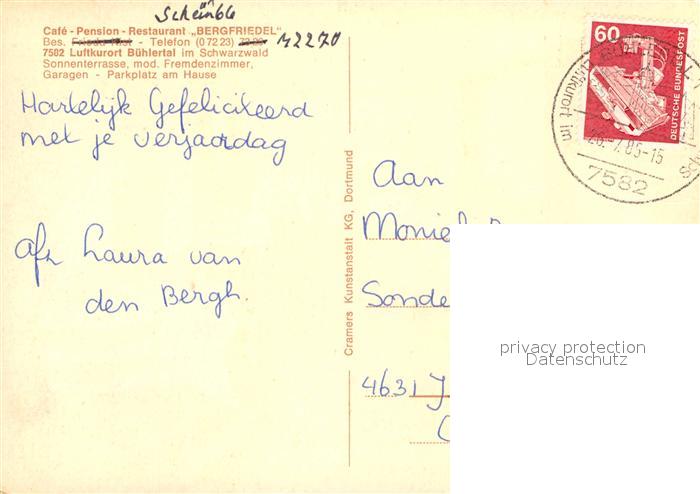 Scheinble
Café - Pension - Restaurant „BERGFRIEDEL"
Bes. - Telefon (0 72 23) 72270
7582 Luftkurort Bühlertal im Schwarzwald
Sonnenterrasse, mod. Fremdenzimmer,
Garagen - Parkplatz am Hause
Hartelijk Gefeliciteerd
met je verjaardag
afz Laura van
den Bergh.
Cramers Kunstanstalt KG, Dortmund
Aan
Moniek
Sonde
4631 J
60
DEUTSCHE BUNDESPOST
Luftkurort im
26.-7.85-15
7582
privacy protection
Datenschutz